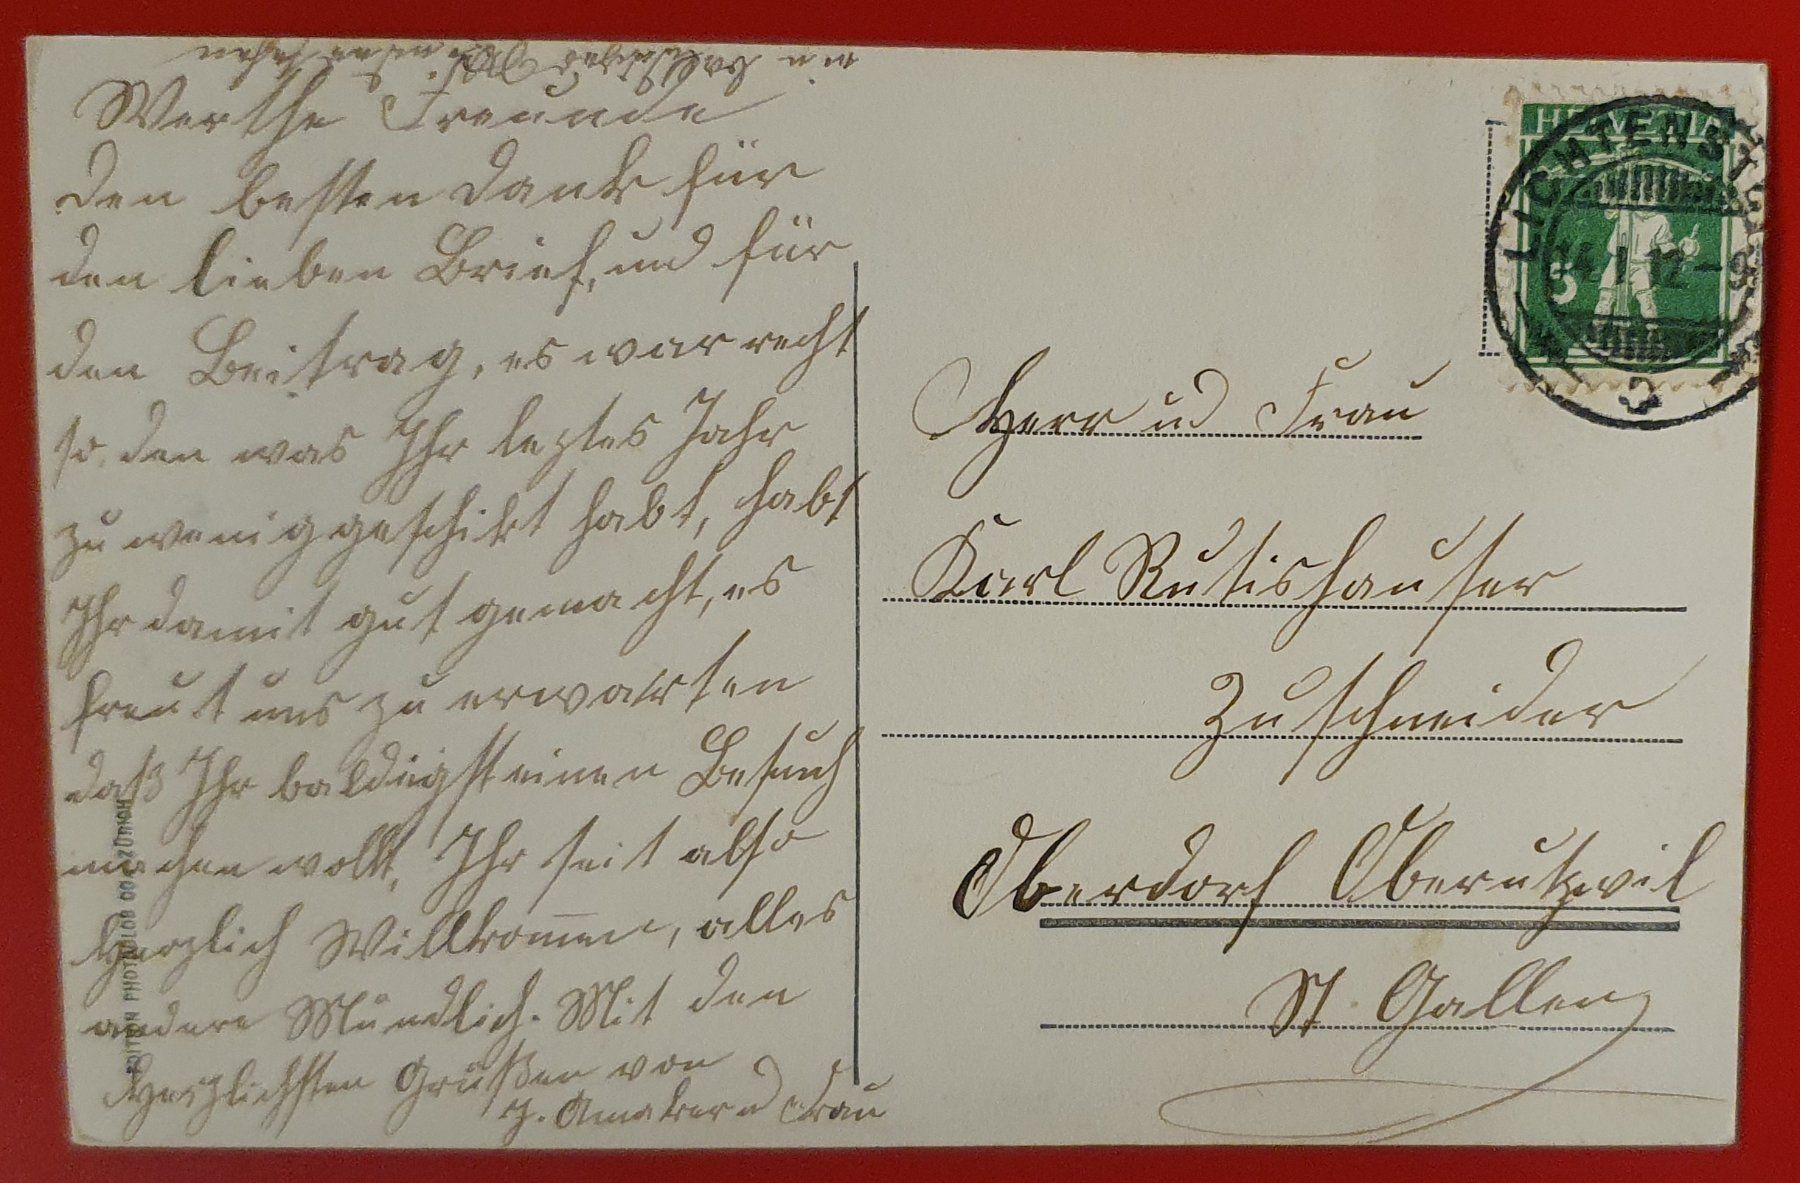 Werthe Freunde
den besten Dank für
den lieben Brief, und für
den Beitrag, es war recht
so, den was Ihr leztes Jahr
zu wenig geschikt habt, habt
Ihr damit gut gemacht, es
freut uns zu erwarten
daß Ihr baldigst einen Besuch
machen wollt, Ihr seit also
Herzlich Willkommen, alles
andere Mündlich. Mit den
Herzlichsten Grüßen von
J. Amaker u Frau
auf baldiges
EDITION PHOTOGLOB CO. ZÜRICH
HELVETIA
5
LICHTENST
14.I.12-9
Herr ud Frau
Karl Rutishauser
Zuschneider
Oberdorf Oberutzwil
St. Gallen